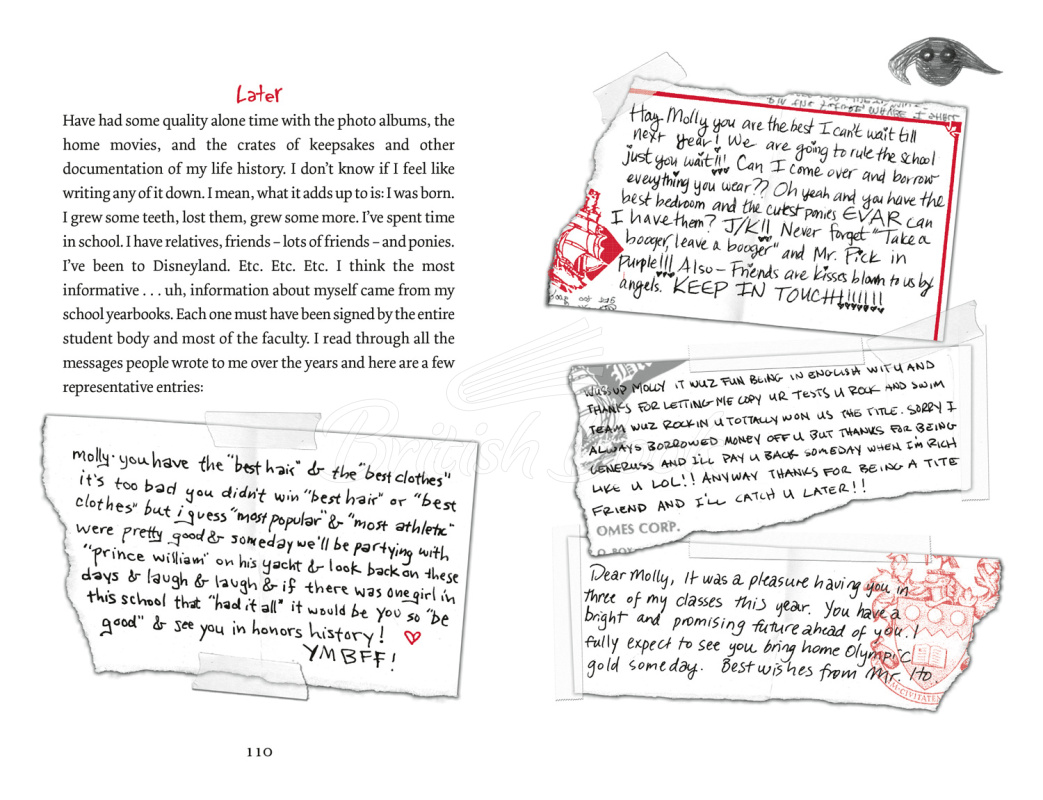 Later
Have had some quality alone time with the photo albums, the
home movies, and the crates of keepsakes and other
documentation of my life history. I don't know if I feel like
writing any of it down. I mean, what it adds up to is: I was born.
I grew some teeth, lost them, grew some more. I've spent time
in school. I have relatives, friends – lots of friends – and ponies.
I've been to Disneyland. Etc. Etc. Etc. I think the most
informative . . . uh, information about myself came from my
school yearbooks. Each one must have been signed by the entire
student body and most of the faculty. I read through all the
messages people wrote to me over the years and here are a few
representative entries:
molly. you have the "best hair" & the "best clothes"
it's too bad you didn't win "best hair" or "best
clothes" but i guess "most popular" & "most athletic"
were pretty good & someday we'll be partying with
"prince william" on his yacht & look back on these
days & laugh & laugh & if there was one girl in
this school that "had it all" it would be you so "be
good" & see you in honors history!
YMBFF!
110
Hay Molly you are the best I can't wait till
next year! We are going to rule the school
just you wait!!! Can I come over and borrow
eveything you wear?? Oh yeah and you have the
best bedroom and the cutest ponies EVAR can
I have them? J/K!! Never forget "Take a
booger, leave a booger" and Mr. Pick in
purple!!! Also – Friends are kisses blown to us by
angels. KEEP IN TOUCH!!!!!!!
WUSSUP MOLLY IT WUZ FUN BEING IN ENGLISH WITH U AND
THANKS FOR LETTING ME COPY UR TESTS U ROCK AND SWIM
TEAM WUZ ROCKIN U TOTTALLY WON US THE TITLE. SORRY I
ALWAYS BORROWED MONEY OFF U BUT THANKS FOR BEING
GENERUSS AND I'LL PAY U BACK SOMEDAY WHEN I'M RICH
LIKE U LOL!! ANYWAY THANKS FOR BEING A TITE
FRIEND AND I'LL CATCH U LATER!!
OMES CORP.
Dear Molly, It was a pleasure having you in
three of my classes this year. You have a
bright and promising future ahead of you. I
fully expect to see you bring home Olympic
gold someday. Best wishes from Mr. Ito
British